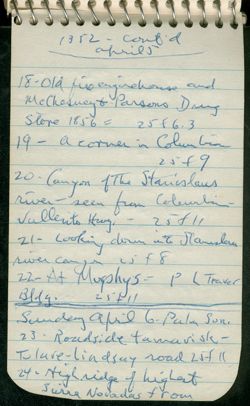 1952 - cont'd
april 5
18 - Old fire enginehouse and
McChesney & Parsons Drug
Store 1856 = 25 f 6.3
19 - A corner in Columbia
25 f 9
20 - Canyon of the Stanislaus
river - seen from Columbia -
Vallecito Hwy. - 25 f 11
21 - Looking down into Stanislaus
river canyon 25 f 8
22 - At Murphys - P L Traver
Bldg. 25 f 11
Sunday April 6 - Palm Sun.
23 - Roadside tamarisk -
Tulare-Lindsay road 25 f 11
24 - High ridge of highest
Sierra Nevadas from